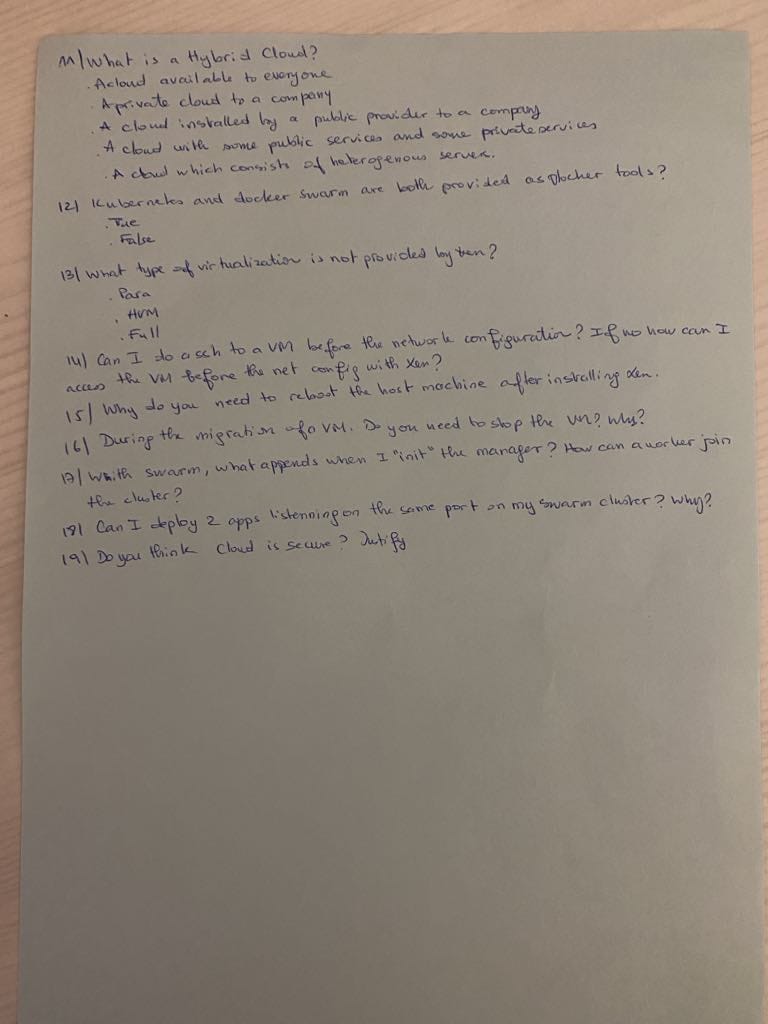 11/ What is a Hybrid Cloud?
. A cloud available to everyone
. A private cloud to a company
. A cloud installed by a public provider to a company
. A cloud with some public services and some private services
. A cloud which consists of heterogenous servers.
12/ Kubernetes and docker swarm are both provided as docker tools?
. True
. False
13/ What type of virtualization is not provided by Xen?
. Para
. HVM
. Full
14/ Can I do a ssh to a VM before the network configuration? If no how can I
access the VM before the net config with Xen?
15/ Why do you need to reboot the host machine after installing Xen.
16/ During the migration of a VM. Do you need to stop the VM? Why?
17/ With swarm, what appends when I "init" the manager? How can a worker join
the cluster?
18/ Can I deploy 2 apps listenning on the same port on my swarm cluster? Why?
19/ Do you think Cloud is secure? Jutify